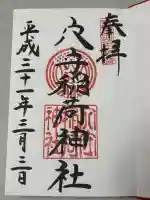 奉拝
穴守稲荷神社
平成三十一年三月三日